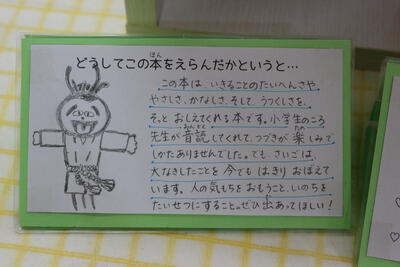 どうしてこの本をえらんだかというと…
ほん
この本は、いきることのたいへんさや
やさしさ、かなしさ、そして、うつくしさを、
そっとおしえてくれる本です。小学生のころ
先生が音読してくれて、つづきが楽しみで
おんどく
たの
しかたありませんでした。でも、さいごは、
大なきしたことを今でもはっきりおぼえて
います。人の気もちをおもうこと、いのちを
たいせつにすること。ぜひ出あってほしい!